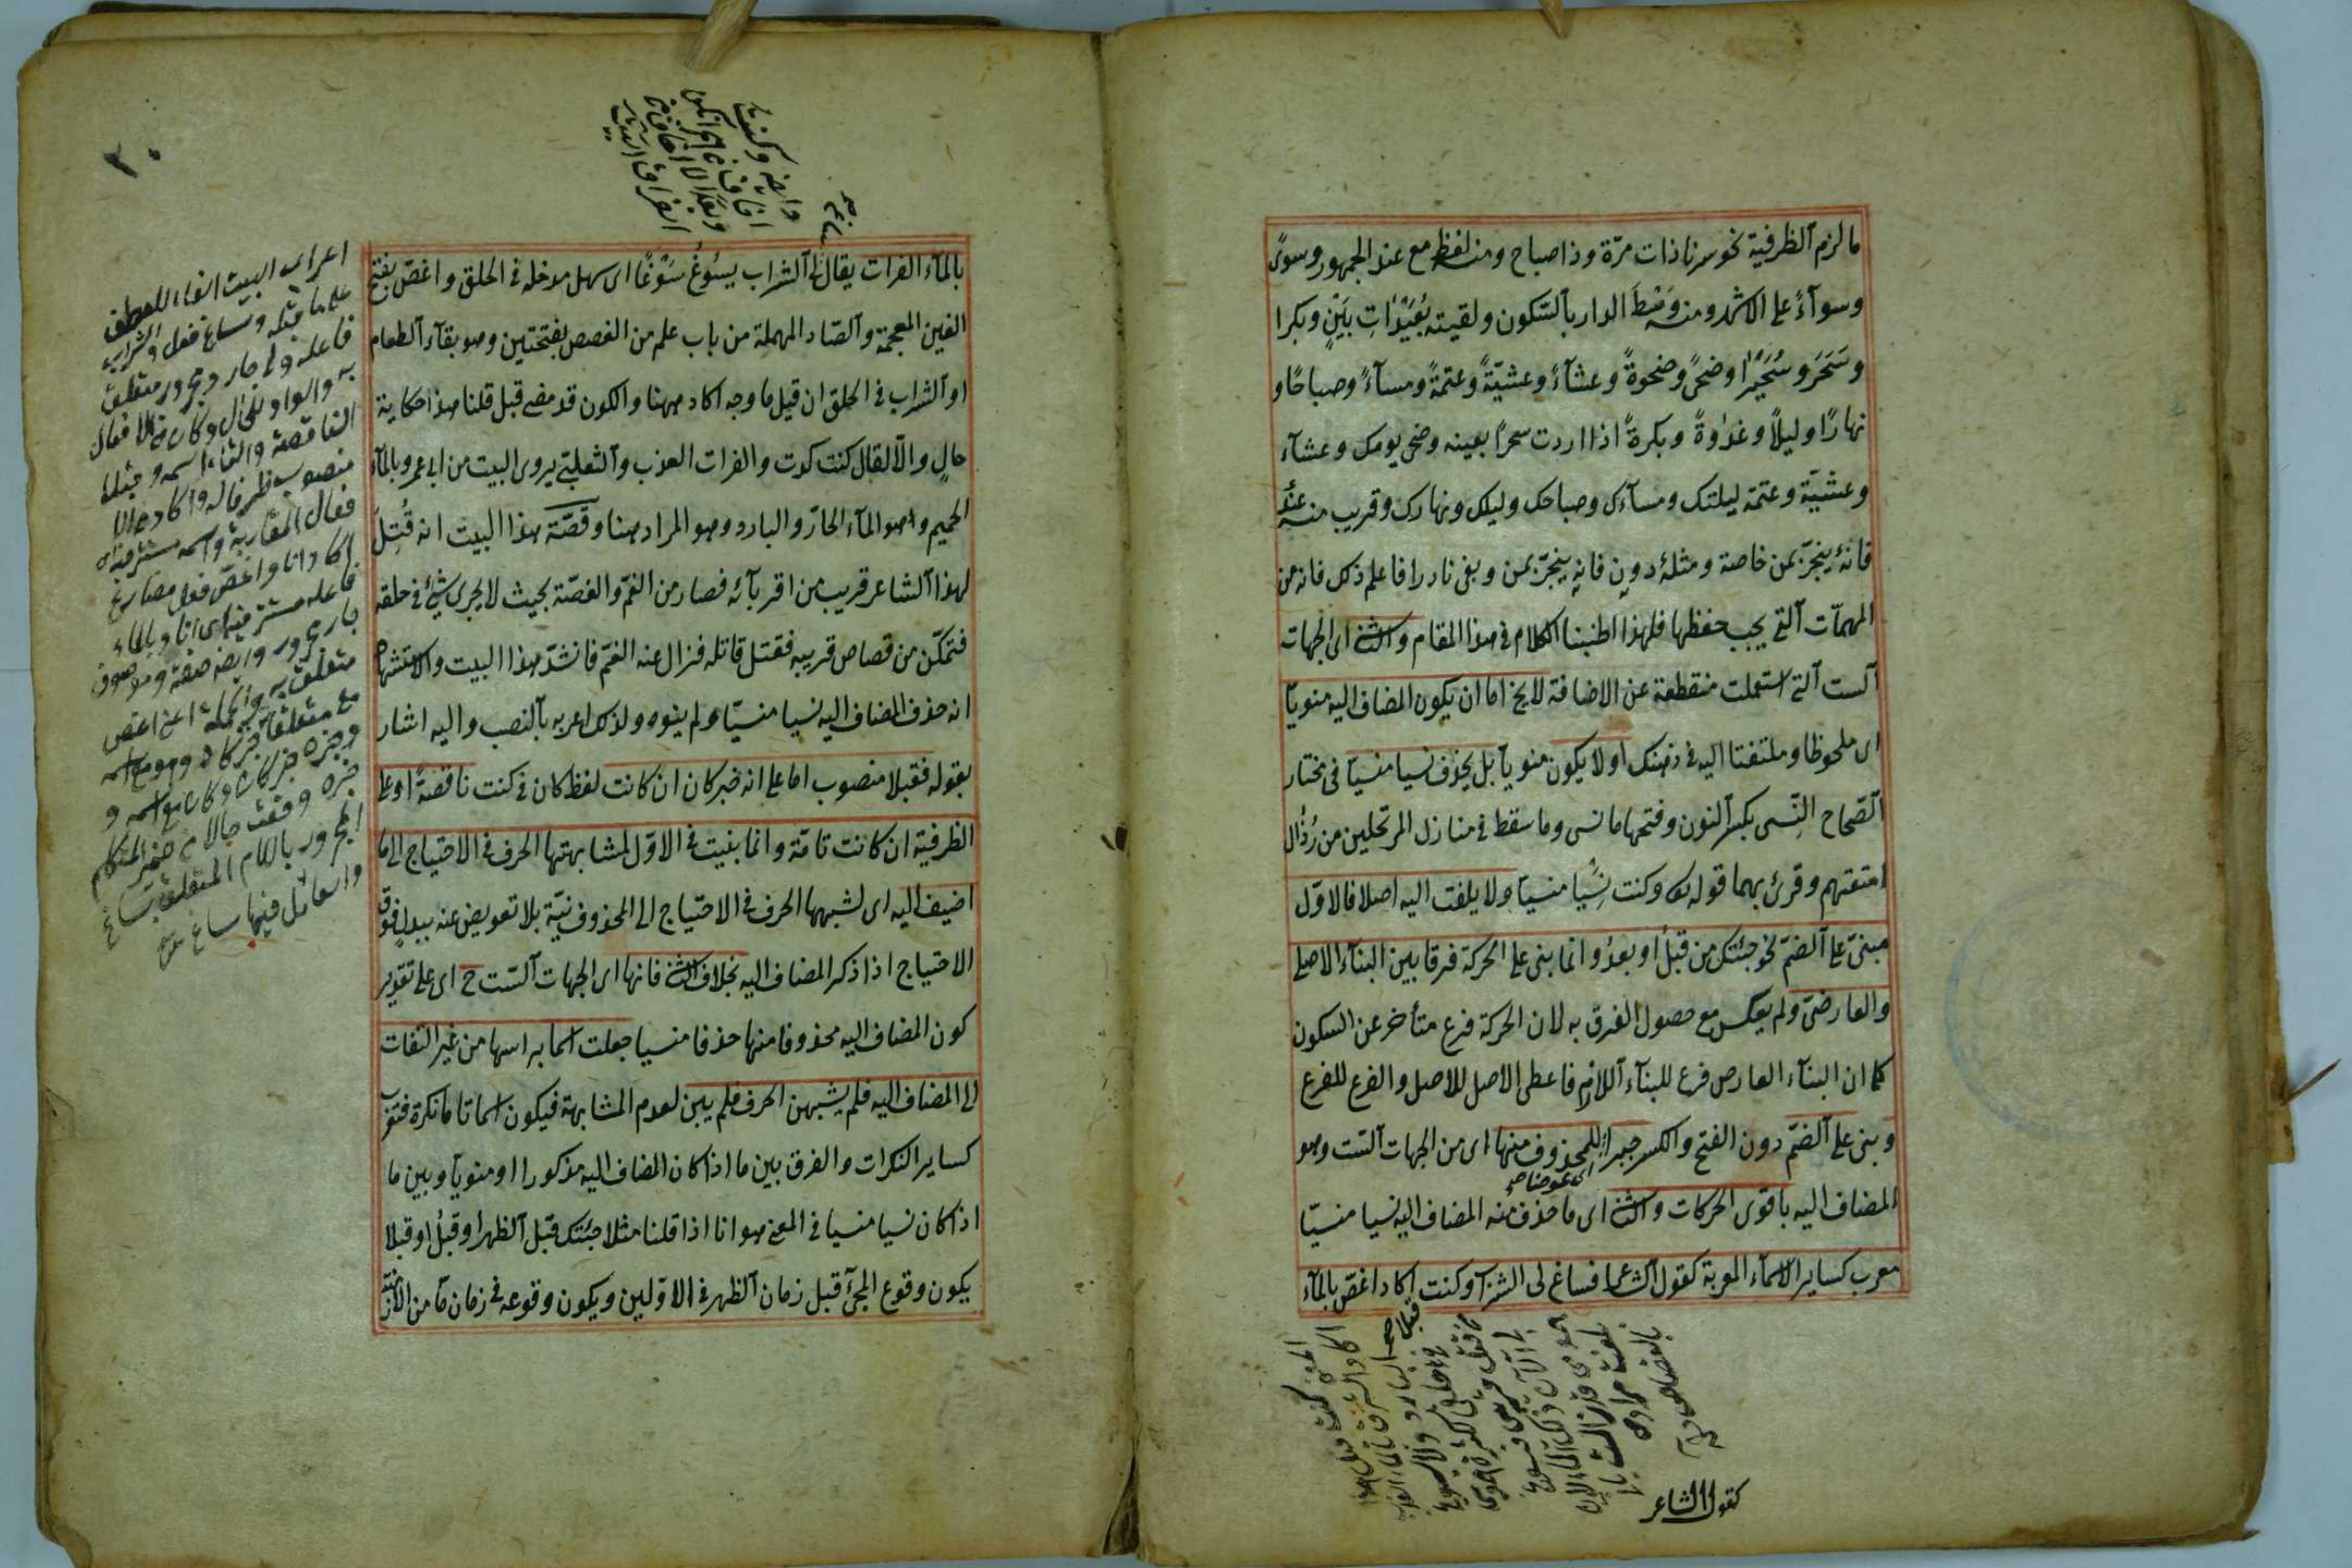 ما لزم الظرفية نحو سرنا ذات مرّة وذا صباح ومنه لفظ مع عند الجمهور وسوى
وسوآءً على الاشهر ومنه وَسْطَ الدار بالسّكون ولقيته بُعَيْدَاتِ بَيْنٍ وبكرا
وسَحَرَ وسُحَيْرًا وضحًى وضحوةً وعشآءً وعشيّةً وعتمةً ومسآءً وصباحًا و
نهارًا وليلًا وغدوةً وبكرةً اذا اردت سحرًا بعينه وضحى يومك وعشآء
وعشيّة وعتمة ليلتك ومسآءك وصباحك وليلك ونهارك وقريب منه عند
فانه ينجرّ بمن خاصة ومثله دون فانه ينجرّ بمن وبفى نادرا فاعلم ذلك فانه من
المهمّات الّتى يجب حفظها فلهذا اطنبنا الكلام فى هذا المقام والثانى اى الجهات
السّت الّتى استعملت منقطعة عن الاضافة لا يخ اما ان يكون المضاف اليه منويّا
اى ملحوظا وملتفتا اليه فى ذهنك او لا يكون منويا بل يحذف نسيا منسيّا فى مختار
الصّحاح النّسى بكسر النون وفتحها ما نسى وما سقط فى منازل المرتحلين من رُذال
امتعتهم وقرئ بهما قوله تعا وكنت نسيا منسيا ولا يلفت اليه اصلا فالاوّل
مبنىّ على الضمّ نحو جئتك من قبلُ او بعدُ وانما بنى على الحركة فرقا بين البنآء الاصلى
والعارضى ولم يعكس مع حصول الفرق به لان الحركة فرع متأخر عن السكون
كما ان البنآء العارض فرع للبنآء اللازم فاعطى الاصل للاصل والفرع للفرع
وبنى على الضمّ دون الفتح والكسر جبرا للمحذوف منها اى من الجهات السّت وهو
اى عوضا
المضاف اليه باقوى الحركات والثانى اى ما حذف منه المضاف اليه نسيا منسيّا
معرب كساير الاسمآء المعربة كقول الشاعر فساغ لى الشراب وكنت اكاد اغصّ بالمآء
كقول الشاعر
بالمآء الفرات يقال الشراب يسُوغُ سَوْغًا اى سهل مدخله فى الحلق واغصّ بفتح
الغين المعجمة والصّاد المهملة من باب علم من الغصص بفتحتين وهو بقآء الطعام
او الشراب فى الحلق ان قيل ما وجه اكاد ههنا والكون قد مضى قبل قلنا هذا حكاية
حالٍ والّا لقال كنت كدت والفرات العذب والثعلبىّ يروى البيت من ابى عمرو بالمآء
الحميم وهو المآء الحارّ والبارد وهو المراد هنا وقصّة هذا البيت انه قُتِلَ
لهذا الشاعر قريب من اقربآئه فصار من الغمّ والغصّة بحيث لا يجرى شئ فى حلقه
فتمكّن من قصاص قريبه فقتل قاتله فزال عنه الغمّ فانشد هذا البيت والاستشهاد
انه حذف المضاف اليه نسيا منسيّا ولم ينوه ولذلك اعربه بالنصب واليه اشار
بقوله فقبلا منصوب اما على انه خبر كان ان كانت لفظ كان فى كنت ناقصةً او على
الظرفية ان كانت تامّة وانما بنيت فى الاوّل لمشابهتها الحرف فى الاحتياج الى ما
اضيف اليه اى لشبهها الحرف فى الاحتياج الى المحذوف نيّة بلا تعويض عنه ببدلٍ فوق
الاحتياج اذا ذكر المضاف اليه بخلاف الثانى فانها اى الجهات السّت ح اى على تقدير
كون المضاف اليه محذوفا منها حذفا منسيا جعلت اسما براسها من غير التفات
الى المضاف اليه فلم يشبهن الحرف فلم يبن لعدم المشابهة فيكون اسما تاما نكرة فتعرب
كساير النكرات والفرق بين ما اذا كان المضاف اليه مذكورا او منويّا وبين ما
اذا كان نسيا منسيا فى المعنى هو انا اذا قلنا مثلا جئتك قبل الظهر او قبلُ او قبلا
يكون وقوع المجئ قبل زمان الظهر فى الاوّلين ويكون وقوعه فى زمان مّا من الازمنة
اعراب البيت الفاء للعطف
على ما قبله وساغ فعل والشراب
فاعله ولى جار ومجرور متعلق
به والواو للحال وكان من الافعال
الناقصة والتاء اسمه وقبلا
منصوب ظرفا له واكاد من ا
فعال المقاربة واسمه مستتر فيه اى
اكاد انا واغص فعل مضارع
فاعله مستتر فيه اى انا وبالماء
جار ومجرور وايضا صفة وموصوف
متعلق به والجملة اعنى اغص
مع متعلقاته خبر كاد وهو مع اسمه
وخبره خبر كان وكان مع اسمه و
خبره وقعت حالا من ضمير المتكلم
المجرور باللام المتعلق بساغ
والعامل فيها ساغ